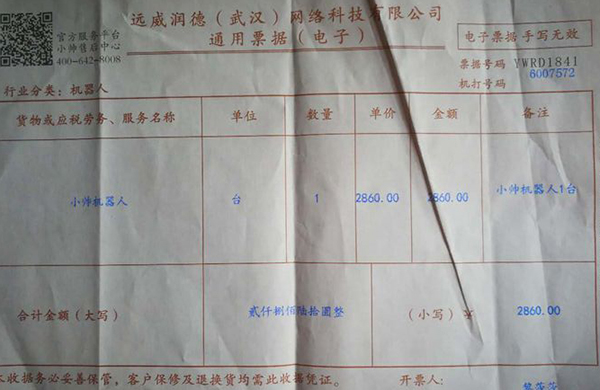 远威润德（武汉）网络科技有限公司
通用票据（电子）
官方服务平台
小帅售后中心
400-642-8008
电子票据手写无效
票据号码 YWRD1841
机打号码 6007572
行业分类：机器人
货物或应税劳务、服务名称 单位 数量 单价 金额 备注
小帅机器人 台 1 2860.00 2860.00 小帅机器人1台
合计金额（大写） 贰仟捌佰陆拾圆整 （小写）￥ 2860.00
收据务必妥善保管，客户保修及退换货均需此收据凭证。 开票人：